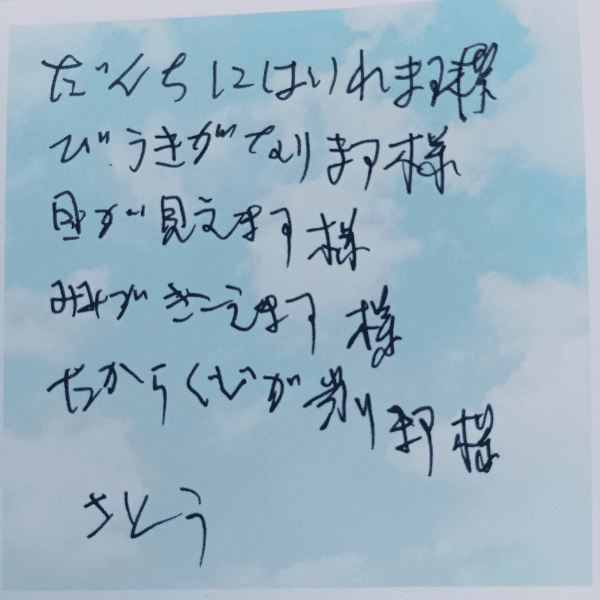 だんちにはいれます様
びょうきがなおります様
目が見えます様
みみがきこえます様
たからくじが当ります様
さとう